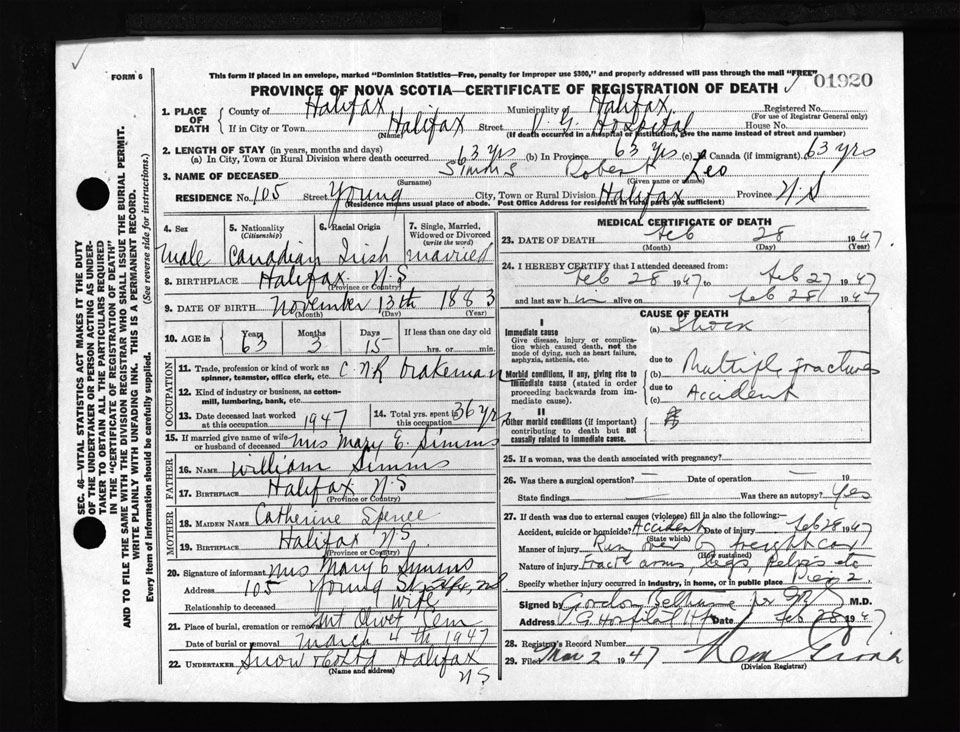 FORM 6
This form if placed in an envelope, marked "Dominion Statistics—Free, penalty for improper use $300," and properly addressed will pass through the mail "FREE"
01920
PROVINCE OF NOVA SCOTIA—CERTIFICATE OF REGISTRATION OF DEATH
1. PLACE OF DEATH County of Halifax Municipality of Halifax Registered No.
(For use of Registrar General only)
If in City or Town Halifax Street V. G. Hospital House No.
(Name) (If death occurred in a hospital or institution, give the name instead of street and number)
2. LENGTH OF STAY (in years, months and days)
(a) In City, Town or Rural Division where death occurred 63 yrs (b) In Province 63 yrs (c) In Canada (if immigrant) 63 yrs
3. NAME OF DECEASED Simms Robert Leo
(Surname) (Given name or names)
RESIDENCE No. 105 Street Young City, Town or Rural Division Halifax Province N.S
(Residence means usual place of abode. Post Office Address for residents in rural parts not sufficient)
4. Sex
Male
5. Nationality
(Citizenship)
Canadian
6. Racial Origin
Irish
7. Single, Married, Widowed or Divorced
(write the word)
married
8. BIRTHPLACE Halifax N.S
(Province or Country)
9. DATE OF BIRTH November 13th 1883
(Month) (Day) (Year)
10. AGE in Years Months Days If less than one day old
63 3 15 hrs. or min.
OCCUPATION
11. Trade, profession or kind of work as spinner, teamster, office clerk, etc. C.N.R brakeman
12. Kind of industry or business, as cotton-mill, lumbering, bank, etc.
13. Date deceased last worked at this occupation 1947
14. Total yrs. spent in this occupation 36 yrs
15. If married give name of wife or husband of deceased Mrs Mary E. Simms
FATHER
16. NAME William Simms
17. BIRTHPLACE Halifax N.S
(Province or Country)
MOTHER
18. MAIDEN NAME Catherine Spence
19. BIRTHPLACE Halifax N.S.
(Province or Country)
20. Signature of informant Mrs Mary E Simms
Address 105 Young St Hfx, NS
Relationship to deceased Wife
21. Place of burial, cremation or removal Mt Olivet Cem
Date of burial or removal March 4th 1947
22. UNDERTAKER Snow & Co Ltd Halifax
(Name and address) NS
MEDICAL CERTIFICATE OF DEATH
23. DATE OF DEATH Feb 28 1947
(Month) (Day) (Year)
24. I HEREBY CERTIFY that I attended deceased from:
Feb 28 1947 to Feb 27 1947
and last saw him alive on Feb 28 1947
CAUSE OF DEATH
I
Immediate cause
Give disease, injury or complication which caused death, not the mode of dying, such as heart failure, asphyxia, asthenia, etc.
(a) Shock
due to
(b) Multiple fractures
Morbid conditions, if any, giving rise to immediate cause (stated in order proceeding backwards from immediate cause).
due to
(c) Accident
II
Other morbid conditions (if important) contributing to death but not causally related to immediate cause.
25. If a woman, was the death associated with pregnancy?
26. Was there a surgical operation? — Date of operation — 19
State findings — Was there an autopsy? Yes
27. If death was due to external causes (violence) fill in also the following:
Accident, suicide or homicide? Accident Date of injury Feb 28 1947
(State which)
Manner of injury Run over by freight car
(How sustained)
Nature of injury Fract'd arms, legs, Pelvis etc
Specify whether injury occurred in industry, in home, or in public place Pier 2
Signed by Gordon Bethune M.D.
Address V.G. Hospital Hfx Date Feb 28 1947
28. Registrar's Record Number
29. Filed Mar 2 1947
(Division Registrar)
SEC. 46—VITAL STATISTICS ACT MAKES IT THE DUTY
OF THE UNDERTAKER OR PERSON ACTING AS UNDER-
TAKER TO OBTAIN ALL THE PARTICULARS REQUIRED
IN THE "CERTIFICATE OF REGISTRATION OF DEATH"
AND TO FILE THE SAME WITH THE DIVISION REGISTRAR WHO SHALL ISSUE THE BURIAL PERMIT.
WRITE PLAINLY WITH UNFADING INK. THIS IS A PERMANENT RECORD.
Every item of information should be carefully supplied. (See reverse side for instructions.)